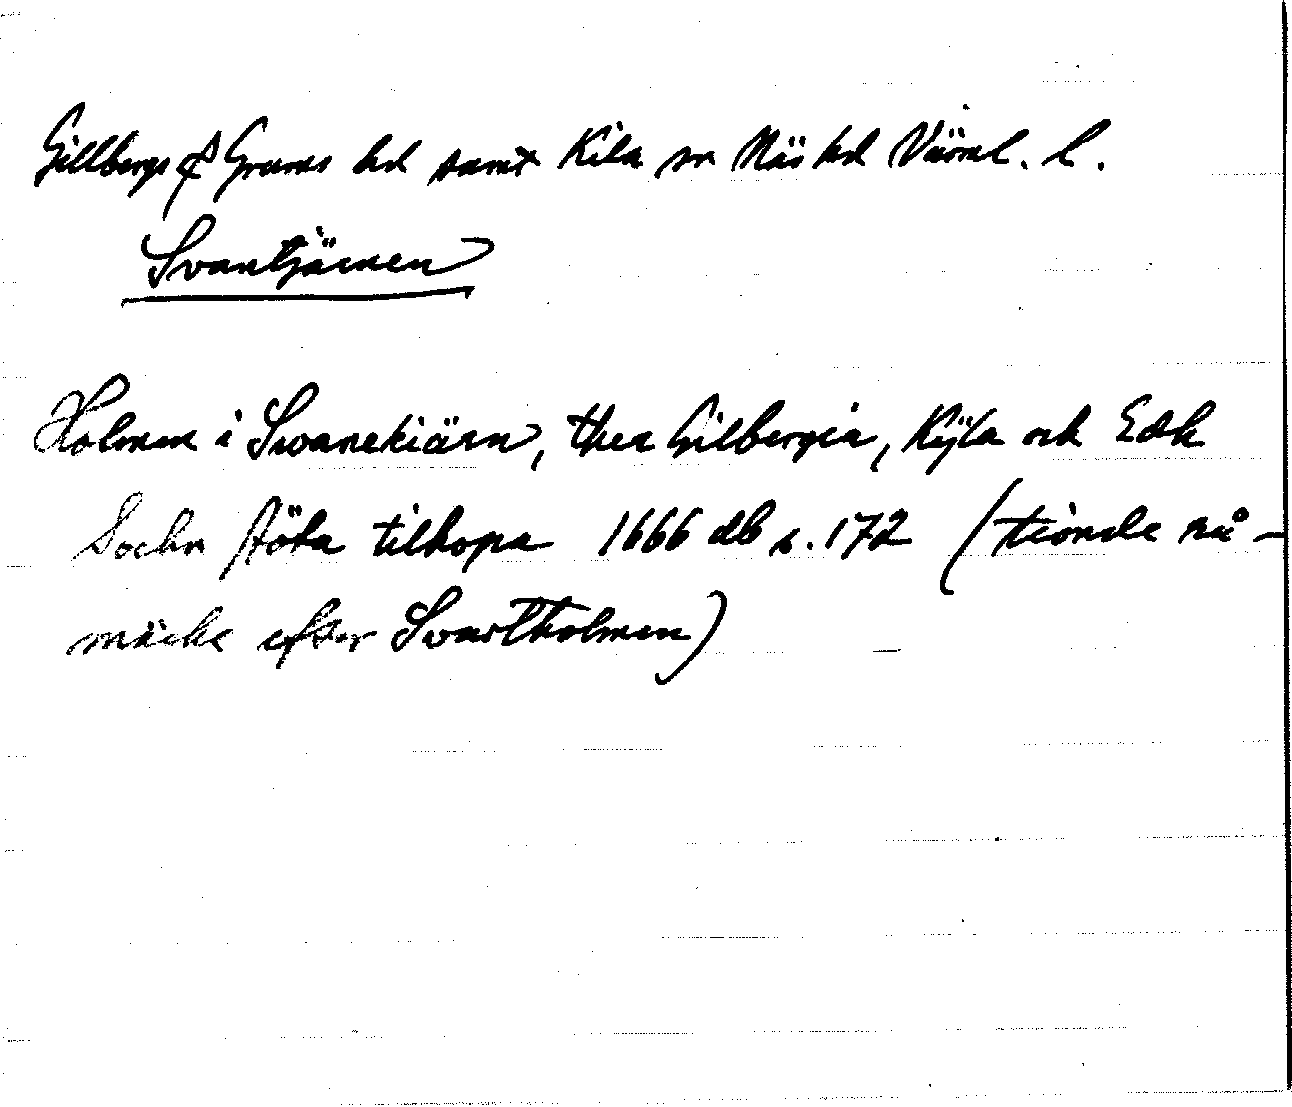 Gillbergs & Grums hd samt Kila sn Näs hd Värml. l.
Svantjärnen
Holmen i Swanekiärn, ther Gilbergia, Kijla och Edh
Sochn stöta tilhopa 1666 db s. 172 (tionde rå-
märke efter Svartholmen)